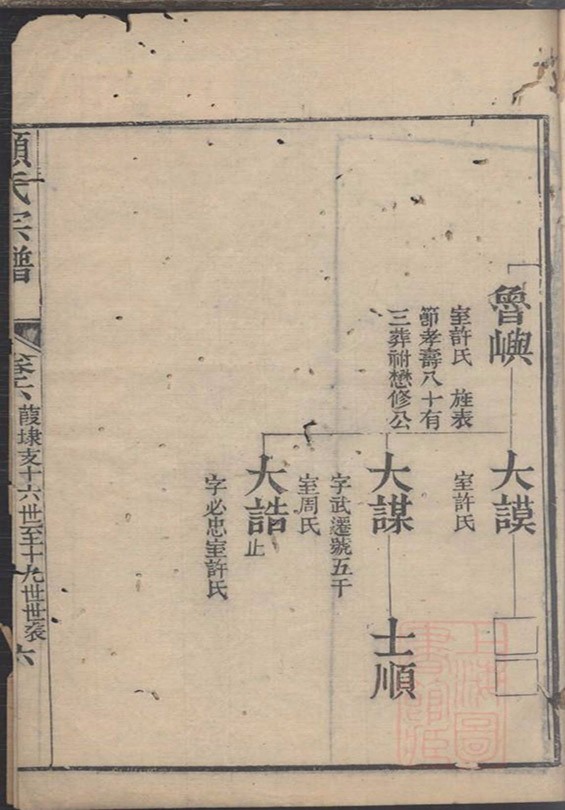 魯嶼
室許氏 旌表
節孝壽八十有
三葬祔懋修公
大謨
室許氏
大謀
字武遷號五干
室周氏
大誥
止
字必忠室許氏
士順
氏宗譜
卷六
葭埭支十六世至十九世世表
六
上海圖
書館藏